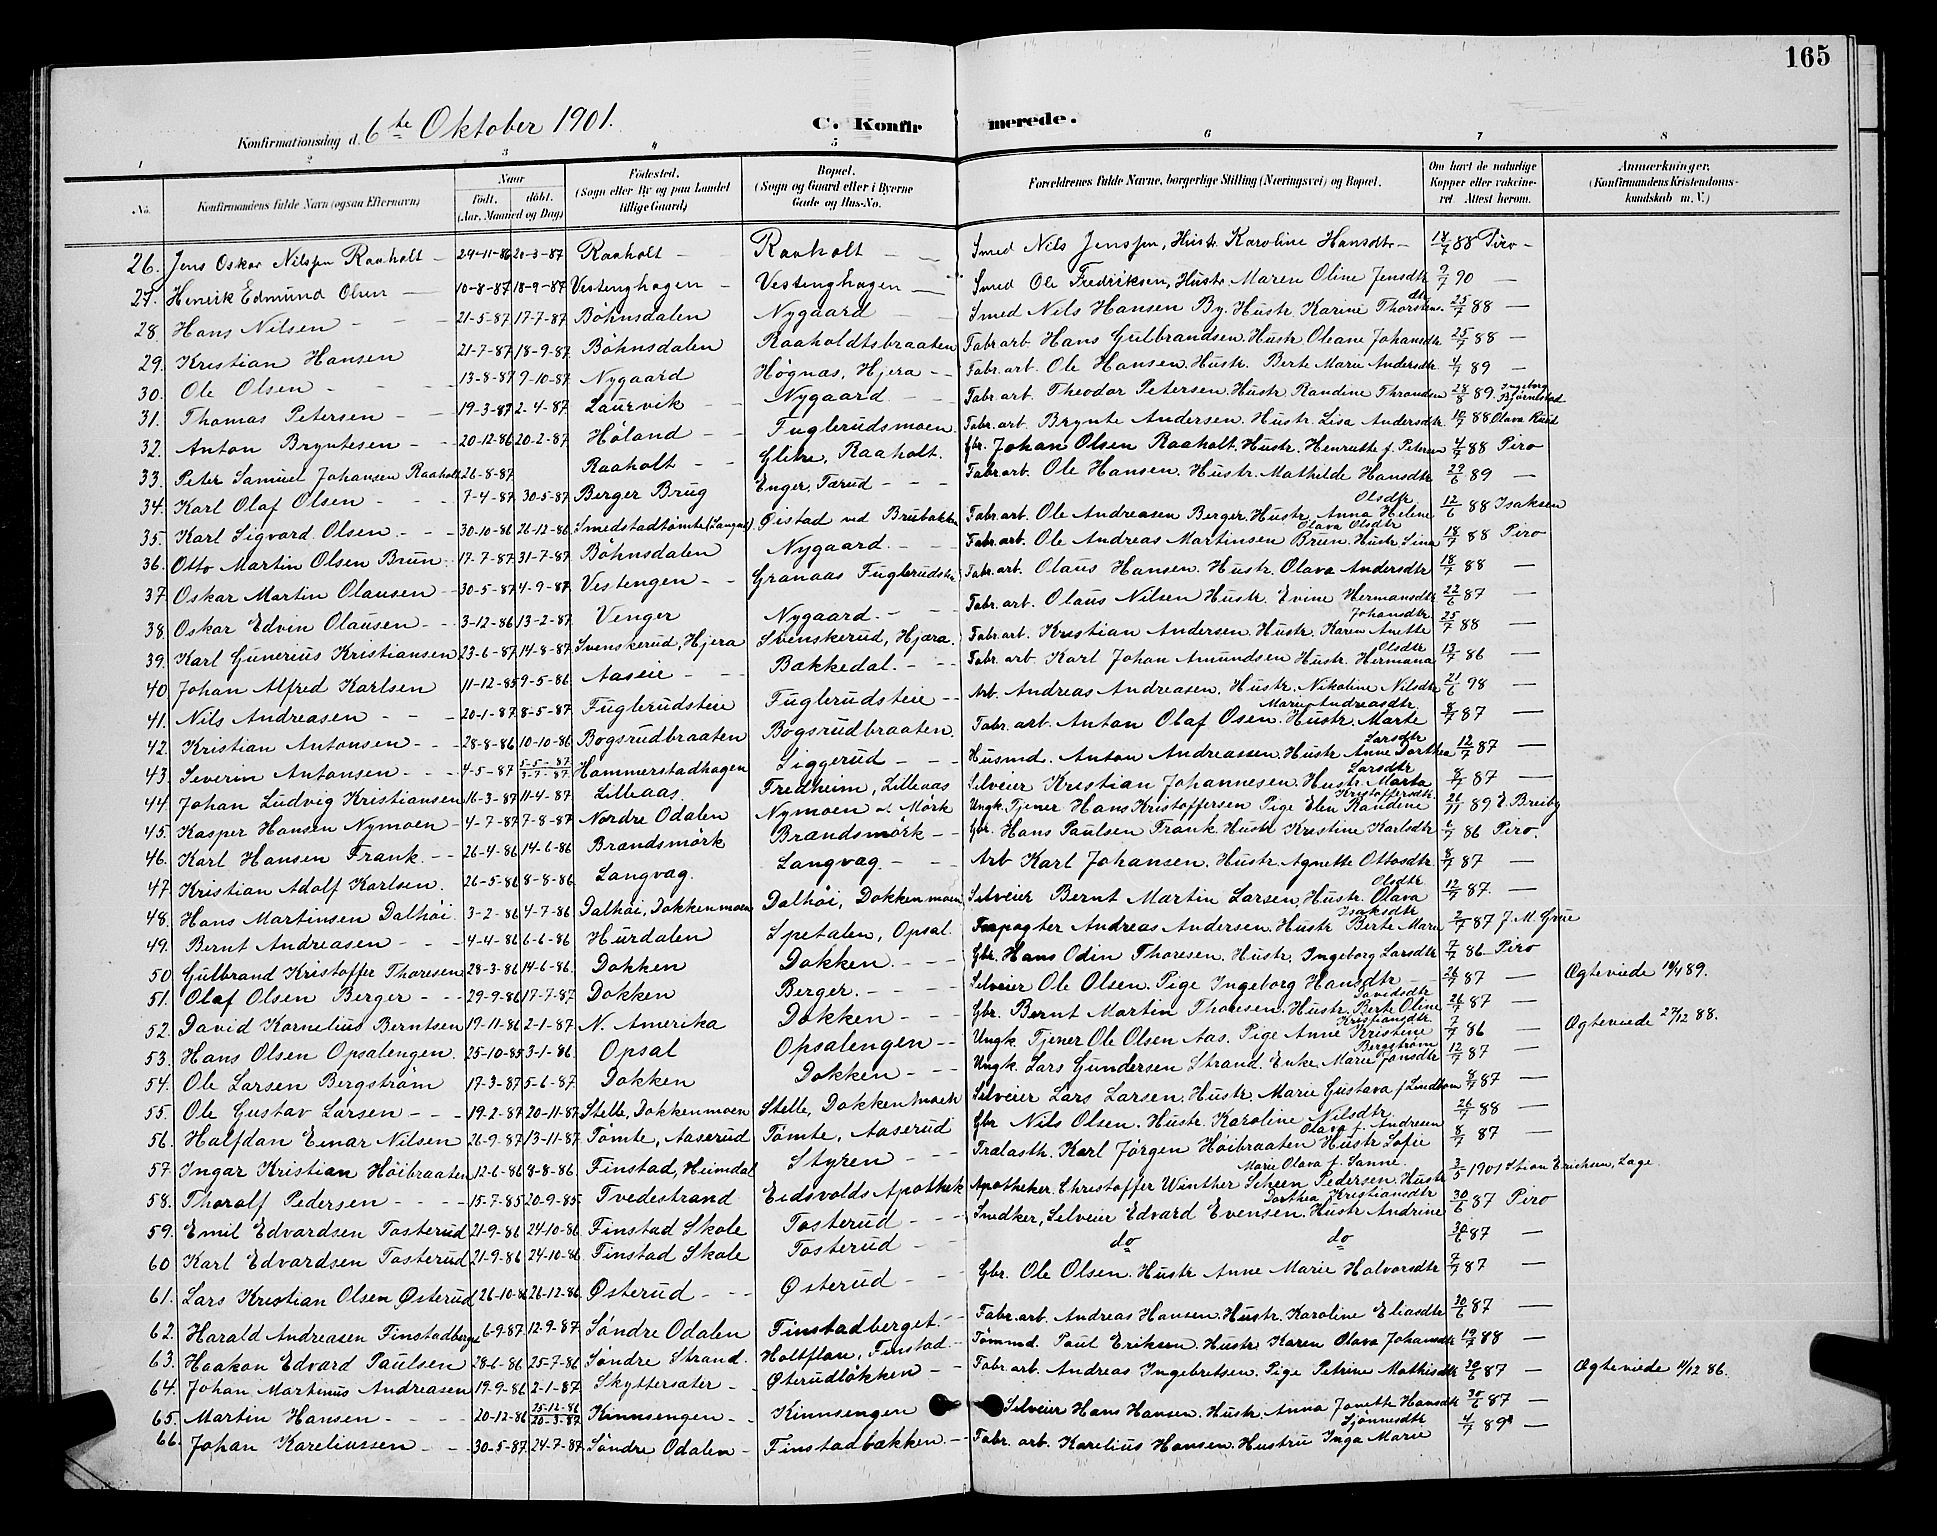 165
Konfirmationsdag d. 6te Oktober 1901. C. Konfirmerede.
1 2 3 4 5 6 7 8
No. Konfirmandens fulde Navn (ogsaa Efternavn) Naar født. døbt. (Aar, Maaned og Dag) Fødested. (Sogn eller By og paa Landet tillige Gaard) Bopæl. (Sogn og Gaard eller i Byerne Gade og Hus-No. Forældrenes fulde Navne, borgerlige Stilling (Næringsvei) og Bopæl. Om havt de naturlige Kopper eller vakcineret. Attest herom. Anmærkninger. (Konfirmandens Kristendomskundskab m. V.)
26. Jens Oskar Nilsen Raaholt 24-11-86 20-3-87 Raaholt Raaholt Smed Nils Jenssen, Hustr. Karoline Hansdtr 18/7 88 Piro
27. Henrik Edmund Olsen 10-8-87 18-9-87 Vestenghagen Vestenghagen Smed Ole Fredriksen, Hustr. Maren Oline Jensdtr 9/7 90 —
28. Hans Nilsen 21-5-87 17-7-87 Bøhnsdalen Nygaard Smed Nils Hansen By. Hustr. Karine Thorstensdtr 25/7 88 —
29. Kristian Hansen 21-7-87 18-9-87 Bøhnsdalen Raaholdtsbraaten Fabr.arb. Hans Gulbrandsen. Hustr. Oleane Johansdtr 25/7 88 —
30. Ole Olsen 13-8-87 9-10-87 Nygaard Høgnas, Hjera Fabr.arb. Ole Hansen. Hustr. Berte Marie Andersdtr. 4/7 89 —
31. Thomas Petersen 19-3-87 2-4-87 Laurvik Nygaard Fabr.arb. Theodor Petersen. Hustr. Randine Throndsen 28/8 89 Ingeborg Bjørnestad
32. Anton Bryntesen 20-12-86 20-2-87 Høland Fuglerudsmoen. Fabr.arb. Brynte Andersen. Hustr. Lisa Andersdtr. 10/7 88 Olava Rud
33. Peter Samuel Johansen Raaholt 26-8-87 Raaholt Raaholt. Gbr. Johan Olsen Raaholt. Hustr. Henriette f. Petersen 4/7 88 Piro
34. Karl Olaf Olsen 7-4-87 30-5-87 Berger Brug Enger, Tærud Fabr.arb. Ole Hansen. Hustr. Mathilde Hansdtr 29/6 89 —
35. Karl Sigvard Olsen 30-10-86 26-12-86 Smedstadtømte (Langset) Øistad ved Brubakken Fabr.arb. Ole Andreasen Berger. Hustr. Anna Helene Olsdtr 12/6 88 Isaksen
36. Otto Martin Olsen Brun 17-7-87 31-7-87 Bøhnsdalen Nygaard. Fabr.arb. Ole Andreas Martinsen Brun. Hustr. Lina Olava Olsdtr 18/7 88 Piro
37 Oskar Martin Olausen 30-5-87 4-9-87 Vestengen Granaas Fuglerudstr Fabr.arb. Olaus Hansen. Hustr. Olava Andersdtr 18/7 88 —
38. Oskar Edvin Olausen 3-12-86 13-2-87 Venger Nygaard. Fabr.arb. Olaus Nilsen Hustr. Evine Hermansdtr 22/6 87 —
39. Karl Gunerius Kristiansen 23-6-87 14-8-87 Svenskerud, Hjera Svenskerud, Hjæra. Fabr.arb. Kristian Andersen. Hustr. Karen Anette Johansdtr 25/7 88 —
40 Johan Alfred Karlsen 11-12-85 9-5-86 Aaseie Bakkedal. Fabr. arb. Karl Johan Amundsen Hustr. Hermana Olsdtr 13/7 86 —
41. Nils Andreasen 20-1-87 8-5-87 Fuglerudsteie Fuglerudsteie Arb. Andreas Andreasen. Hustr. Nikoline Nilsdtr 21/6 98 —
42. Kristian Antonsen 28-8-86 10-10-86 Bogsrudbraaten Bogsrudbraaten. Fabr.arb. Anton Olaf Osen. Hustr. Marte Marie Andreasdtr. 8/7 87 —
43. Severin Antonsen 4-5-87 5-5-87 3-7-87 Hammerstadhagen Liggerud Husmd. Anton Andreassen. Hustr. Anne Dorthea Larsdtr 12/7 87 —
44. Johan Ludvig Kristiansen 16-3-87 11-4-87 Lilleaas. Fredheim, Lilleaas Selveier Kristian Johannesen. Hustr. Marta Larsdtr 8/7 87 —
45. Kasper Hansen Nymoen 4-7-87 7-8-87 Nordre Odalen Nymoen v. Mørk Ungk. Tjener Hans Kristoffersen Pige Elen Randine Kristoffersdtr. 21/11 89 E. Breiby
46. Karl Hansen Frank. 26-4-86 14-6-86 Brandsmørk Brandsmørk Gbr. Hans Paulsen Frank. Hustr Kristine Karlsdtr 6/7 86 Piro.
47 Kristian Adolf Karlsen. 26-5-86 8-8-86 Langvag. Langvag Arb Karl Johansen. Hustr. Agnette Ottosdtr 8/7 87 —
48. Hans Martinsen Dalhøi 3-2-86 4-7-86 Dalhøi, Dokkenmoen Dalhøi, Dokkenmoen Selveier Bernt Martin Larsen, Hustr. Olava Olsdtr 12/7 87. —
49. Bernt Andreasen 4-4-86 6-6-86 Hurdalen Spetalen, Opsal Forpagter Andreas Andersen. Hustr Berte Marie Isaksdtr 2/7 87 J. M. Gvue
50 Gulbrand Kristoffer Thoresen 28-3-86 14-6-86. Dokken Dokken. Gbr. Hans Odin Thoresen. Hustr. Ingeborg Larsdtr 7/7 86 Piro
51. Olaf Olsen Berger 29-9-86 17-7-87 Dokken Berger. Selveier Ole Olsen. Pige Ingeborg Hansdtr 26/7 87 — Ægteviede 19/4 89.
52. David Kornelius Berntsen 19-11-86 2-1-87 N. Amerika Dokken Gbr. Bernt Martin Thoresen. Hustr. Berte Oline Davidsdtr 26/7 87 —
53. Hans Olsen Opsalengen. 25-10-85 3-1-86. Opsal Opsalengen Ungk. Tjener Ole Olsen Aas. Pige Anne Kristine Kristiansdtr 7/7 86 — Ægteviede 27/12 88.
54. Ole Larsen Bergstrøm 17-3-87 5-6-87 Dokken Dokken Ungk. Lars Gundersen Strand. Enke Marie Jonsdtr Bergstrøm 12/7 87 —
55. Ole Gustav Larsen 19-2-87 20-11-87 Stelle, Dokkenmoen Stelle, Dokkenmoen Selveier Lars Larsen. Hustr. Marie Gustava f. Lindbom 8/7 87 —
56. Halfdan Einar Nilsen 26-9-87 13-11-87 Tømte, Aaserud Tømte, Aaserud Gbr Nils Olsen. Hustr. Karoline Nilsdtr. 26/7 88 —
57 Ingar Kristian Høibraaten 12-6-86 8-8-86 Finstad, Heimdal Styren Trælasth. Karl Jørgen Høibraaten Hustr Sofie Olava f. Andresen 8/7 87 —
58. Thoralf Pedersen 15-7-85 20-9-85 Tvedestrand Eidsvolds Apothek Apotheker. Christoffer Winther Scheen Pedersen. Hustr Marie Olava f. Sanne. 3/5 1901 Stian Erichsen, Læge.
59. Emil Edvardsen Tosterud 21-9-86 24-10-86 Finstad Skole Tosterud Snedker, Selveier Edvard Evensen. Hustr Andrine Dorthea Kristiansdtr 30/6 87 Piro
60 Karl Edvardsen Tosterud 21-9-86 24-10-86 Finstad Skole Tosterud do do 30/6 87 —
61. Lars Kristian Olsen Østerud 26-10-86 26-12-86 Østerud Østerud Gbr. Ole Olsen. Hustr Anne Marie Halvorsdtr 7/7 87 —
62. Harald Andreasen Finstadberget 6-9-87 12-9-87 Søndre Odalen Finstadberget. Fabr.arb. Andreas Hansen. Hustr. Karoline Eliasdtr 30/6 87 —
63. Haakon Edvard Paulsen 28-6-86 25-7-86 Søndre Strand. Holtflan, Finstad Tømmd. Paul Eriksen. Hustr. Karen Olava Johansdtr 19/7 88 —
64. Johan Martinus Andreasen 19-9-86 2-1-87 Skyttersæter Østerudløkken Fabr.arb. Andreas Ingebretsen. Pige Petrine Mathisdtr 30/6 87 — Ægteviede 11/12 86.
65. Martin Hansen 20-12-86 25-12-86 20-3-87 Kinnsengen Kinnsengen Selveier Hans Hansen. Hustr. Anna Jonette Hansdtr 30/6 87 —
66. Johan Kareliussen 30-5-87 24-7-87 Søndre Odalen Finstadbakken. Fabr. arb. Karelius Hansen. Hustru Inga Marie Sjønnesdtr 4/7 89 —